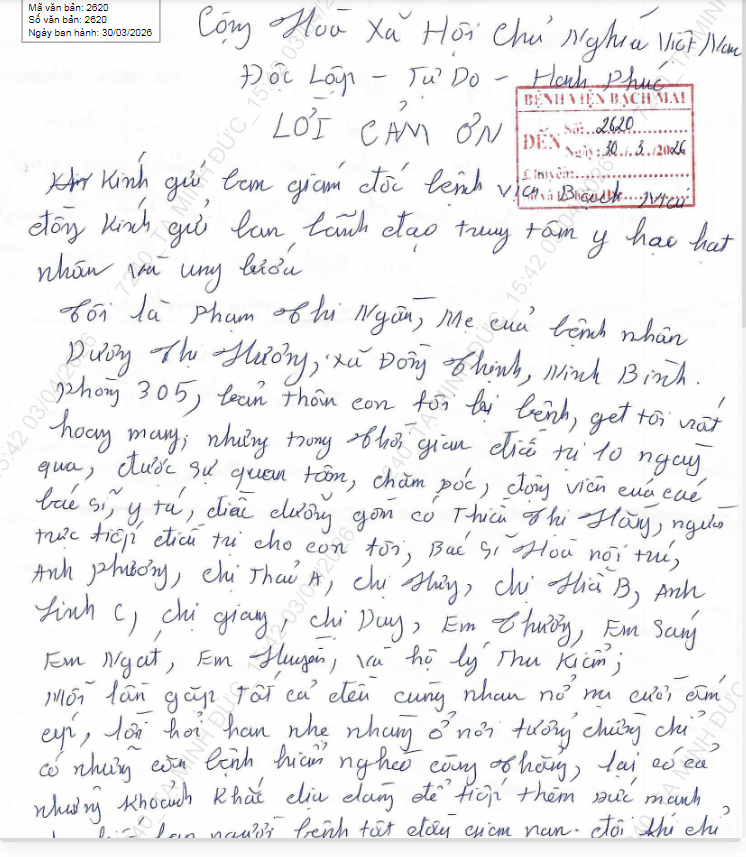 Mã văn bản: 2620
Số văn bản: 2620
Ngày ban hành: 30/03/2026
Cộng Hoà Xã Hội Chủ Nghĩa Việt Nam
Độc Lập - Tự Do - Hạnh Phúc
LỜI CẢM ƠN
BỆNH VIỆN BẠCH MAI
ĐẾN
Số: 2620
Ngày: 30 / 3 / 2026
Chuyển:
Kính gửi ban giám đốc bệnh viện Bạch Mai
đồng kính gửi ban lãnh đạo trung tâm y học hạt
nhân và ung bướu
Tôi là Phạm Thị Ngân, Mẹ của bệnh nhân
Dương Thị Hương, xã Đồng Thịnh, Ninh Bình.
phòng 305, bản thân con tôi bị bệnh, get tôi rất
hoang mang, nhưng trong thời gian điều trị 10 ngày
qua, được sự quan tâm, chăm sóc, động viên của các
bác sĩ, y tá, điều dưỡng gồm có Thiều Thị Hằng, người
trực tiếp điều trị cho con tôi, Bác sĩ Hoà nội trú,
Anh phương, chị Thảo A, chị Thủy, chị Hiền B, Anh
Linh C, chị giang, chị Duy, Em Thương, Em Sang
Em Ngát, Em Huyền, và hộ lý Thu Kiểm;
Mỗi lần gặp tất cả đều cùng nhau nở nụ cười ấm
áp, lời hỏi han nhẹ nhàng ở nơi tưởng chừng chỉ
có những căn bệnh hiểm nghèo căng thẳng, lại có cả
những khoảnh khắc dịu dàng để tiếp thêm sức mạnh
người bệnh tật đầy gian nan. đôi khi chỉ
7240_TẠ MINH ĐỨC_15:42 03/04/2026